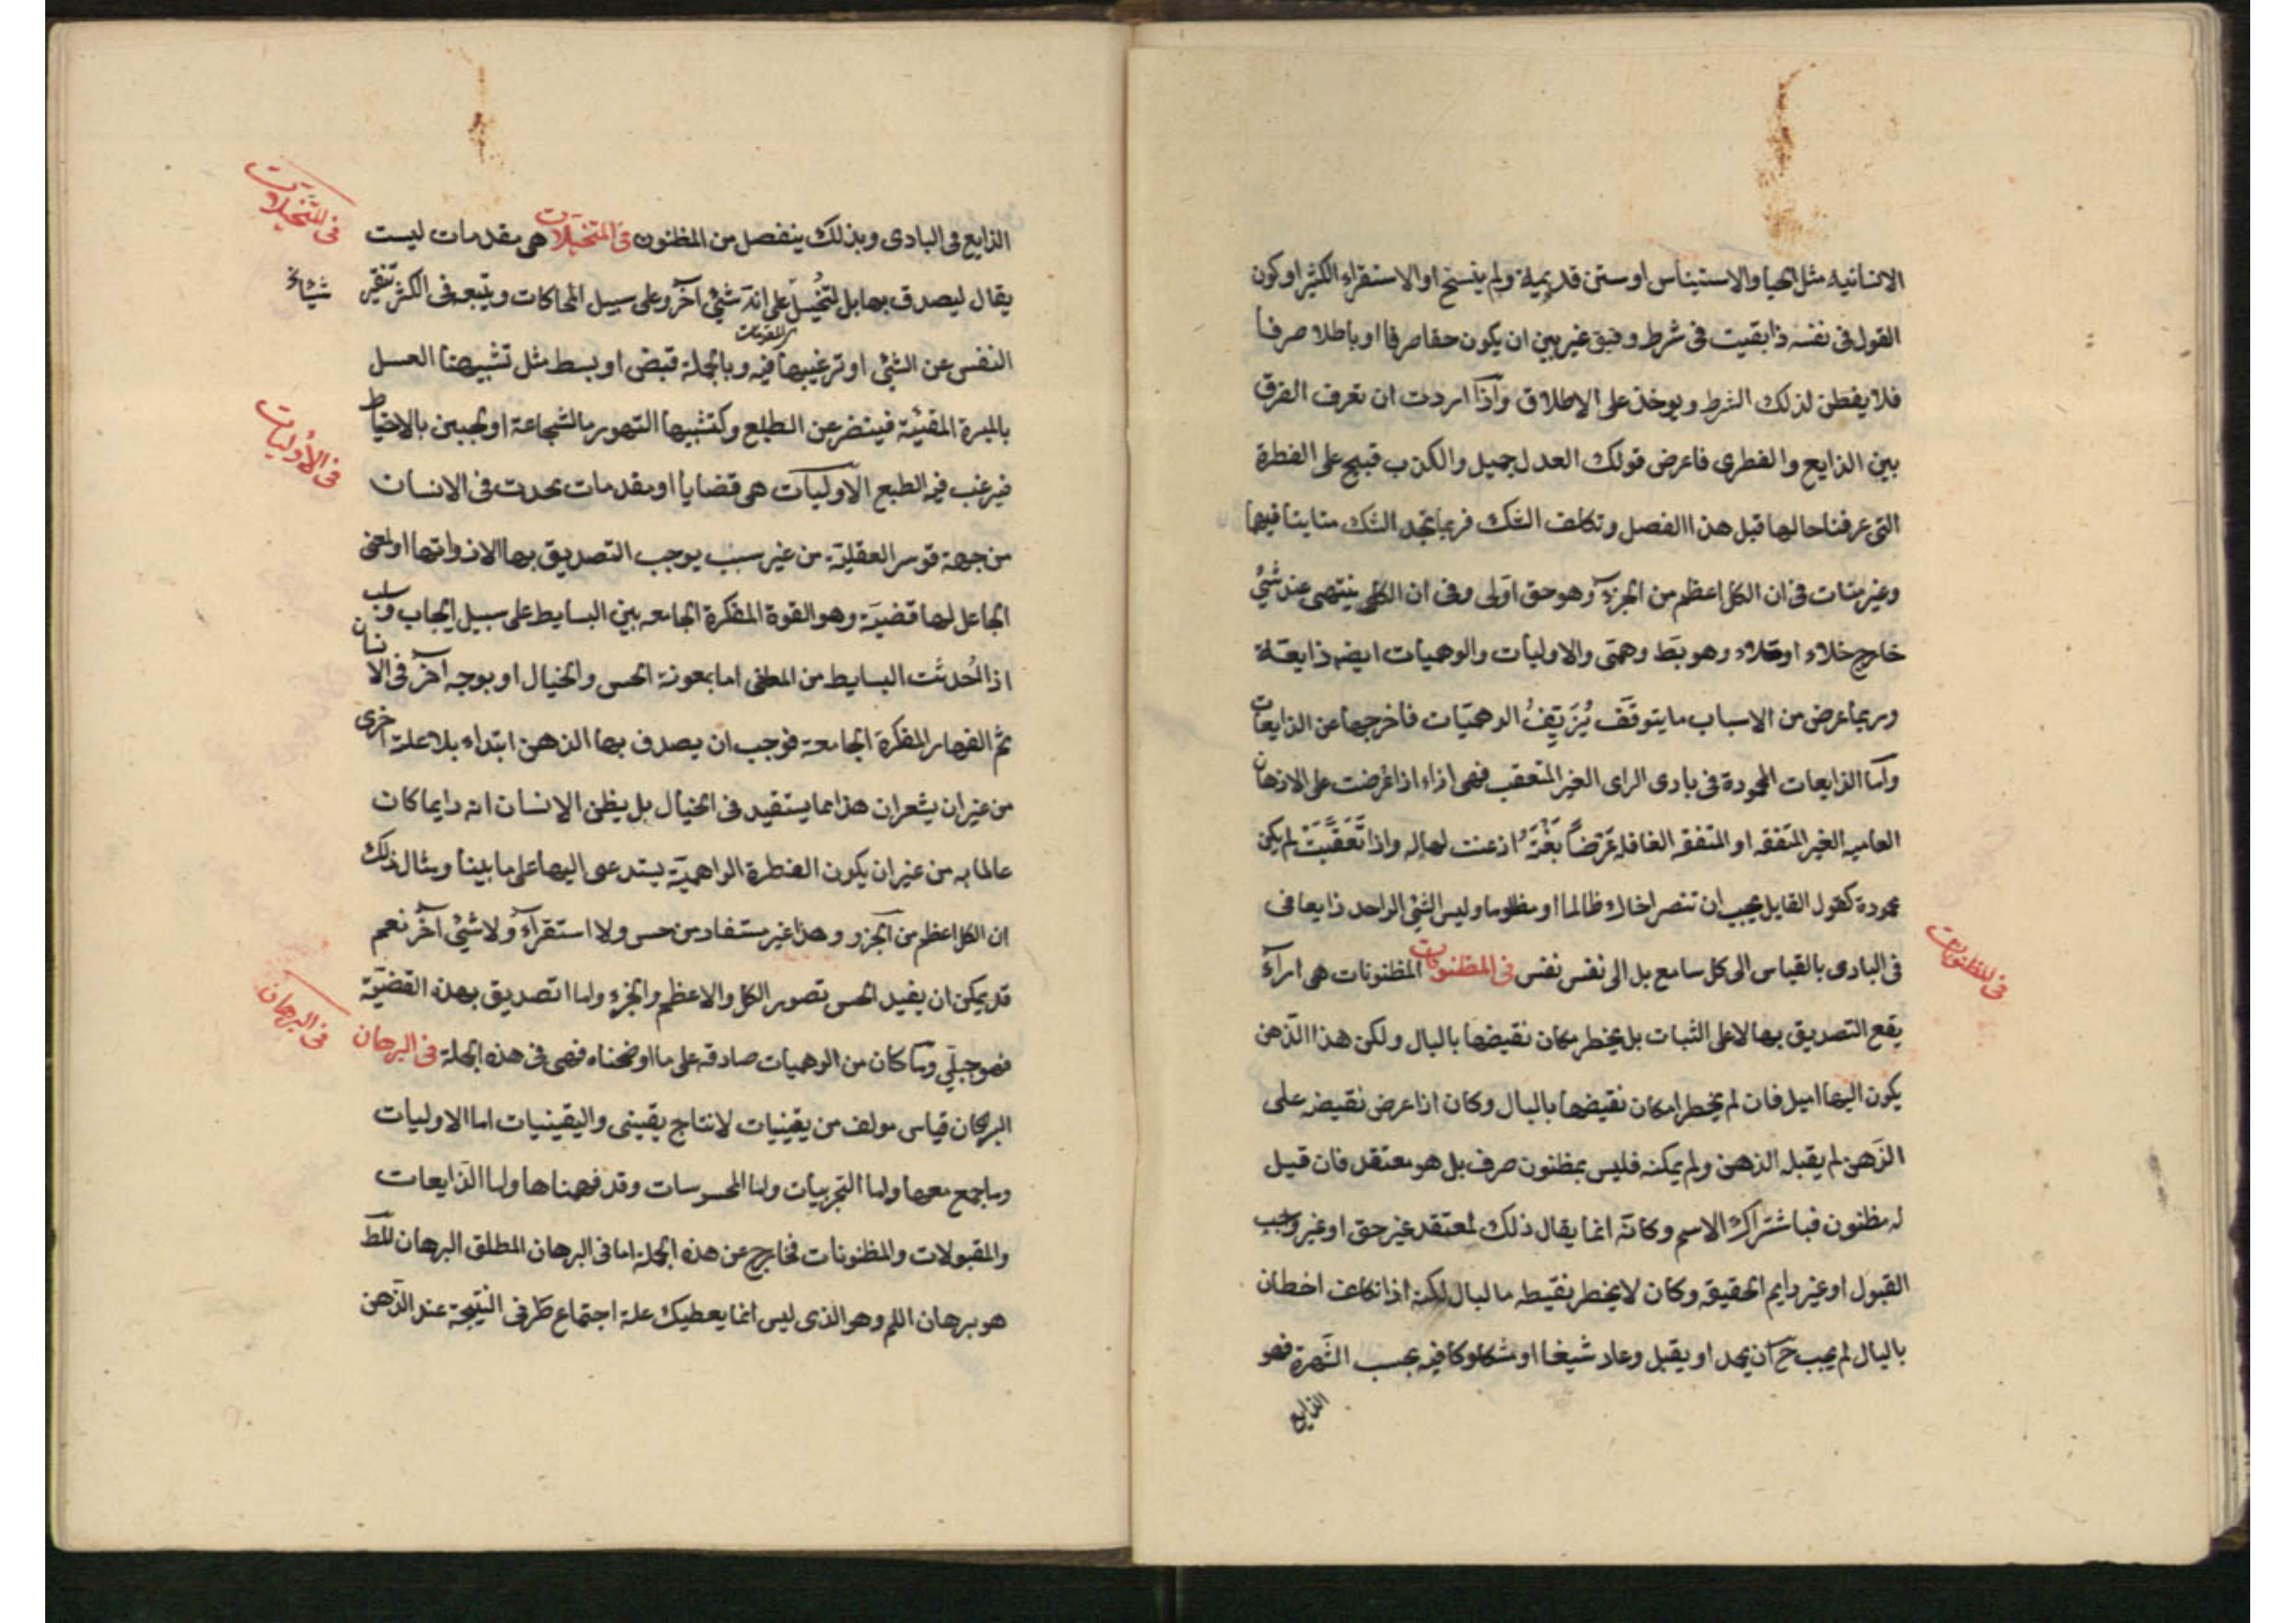 الانسانيه مثل الحيا والاستيناس او سنن قديمية ولم ينسخ او الاستقراء الكثير او كون
القول فى نفسه ذا بقيت فى شرط و فيق غير بين ان يكون حقا صرفا او باطلا صرفا
فلا يفطن لذلك الشرط و يوخذ على الاطلاق واذا اردت ان تعرف الفرق
بين الذايع والفطرى فاعرض قولك العدل جميل والكذب قبيح على الفطرة
التى عرفنا حالها قبل هذا الفصل وتكلف الشك فربما تجد الشك متايتا فيها
وغير متات فى ان الكل اعظم من الجزء وهو حق اولى وفى ان الكل ينتهى عند شئ
خارج خلاء او خلاء وهو بط وهمى والاوليات والوهميات ايضه ذايعة
وربما عرض من الاسباب ما يتوقف يُزَيِّفُ الوهميّات فاخرجها عن الذايعات
واما الذايعات المحمودة فى بادى الراى الغير المتعقب فهى اراء اذا عرضت على الاذهان
العاميه الغير المتفقه او المتفقه الغافله عَرَضاً بَغْتَةً اذعنت لها له واذا تَعَقَّبَتْ لم يكن
محمودة كقول القايل يجب ان تنصر اخاك ظالما او مظلوما وليس الشئ الواحد ذايعا فى
فى البادى بالقياس الى كل سامع بل الى نفس نفس فى المظنونات المظنونات هى اراء
فى المظنونات
يقع التصديق بها لا على الثبات بل يخطر مكان نقيضها بالبال ولكن هذا الذهن
يكون اليها اميل فان لم يخطر امكان نقيضها بالبال وكان اذا عرض نقيضه على
الذهن لم يقبل الذهن ولم يمكنه فليس بمظنون صرف بل هو معتقد فان قيل
له مظنون فباشتراك الاسم وكانه انما يقال ذلك لمعتقد غير حق او غير واجب
القبول او غير دايم الحقيقه وكان لا يخطر نقيطه مالبال لكنه اذا تكلف اخطان
بالبال لم يجب ح ان يحد او يقبل وعاد شيغا او شكاوكا فيه بحسب الشهرة فهو
الذايع
الذايع فى البادى وبذلك ينفصل من المظنون فى المتخيلات هى مقدمات ليست
فى المتخيلات
يقال ليصدق بها بل لتخيل على انه شئ آخر وعلى سبيل المحاكات ويتبعه فى الكثر تنفير
النفس عن الشئ او ترغيبها فيه وبالجملة قبض او بسط مثل تشبيهنا العسل
بالمرة المقيئة فينفر عن الطبع وكتشبيها التهور بالشجاعة او الجبن بالاحتياط
فيرغب فيه الطبع الاوليات هى قضايا او مقدمات يحدث فى الانسان
فى الاوليات
من جهة قوسر العقلية من غير سبب يوجب التصديق بها الا ذواتها او المعنى
الجاعل لها قضية وهو القوة المفكرة الجامعه بين البسايط على سبيل ايجاب وسلب
اذا اُحدثت البسايط من المعنى اما بمعونة الحس والخيال او بوجه آخر فى الانسان
ثم الفهار المفكرة الجامعة فوجب ان يصدف بها الذهن ابتداء بلا علة اخرى
من غير ان يشعر ان هذا مما يستفيد فى الخيال بل يظن الانسان انه دايما كان
عالما به من غير ان يكون الفطرة الواهمية يستدعى اليها على ما بينا ومثال ذلك
ان الكل اعظم من الجزو وهذا غير مستفاد من حس ولا استقرآء ولا شئ آخر نعم
قد يمكن ان يفيد الحس تصور الكل والاعظم والجزء واما التصديق بهذه القضية
فهو جبلّي وما كان من الوهميات صادقه على ما اوضحناه فهى فى هذه الجملة فى البرهان
فى البرهان
البرهان قياس مولف من يقينيات لانتاج يقينى واليقينيات اما الاوليات
وما جمع معها واما التجربيات واما المحسوسات وقد فهمناها واما الذايعات
والمقبولات والمظنونات فخارج عن هذه الجملة اما فى البرهان المطلق البرهان المط
هو برهان اللم وهو الذى ليس انما يعطيك علة اجتماع طرفى النتيجة عند الذهن